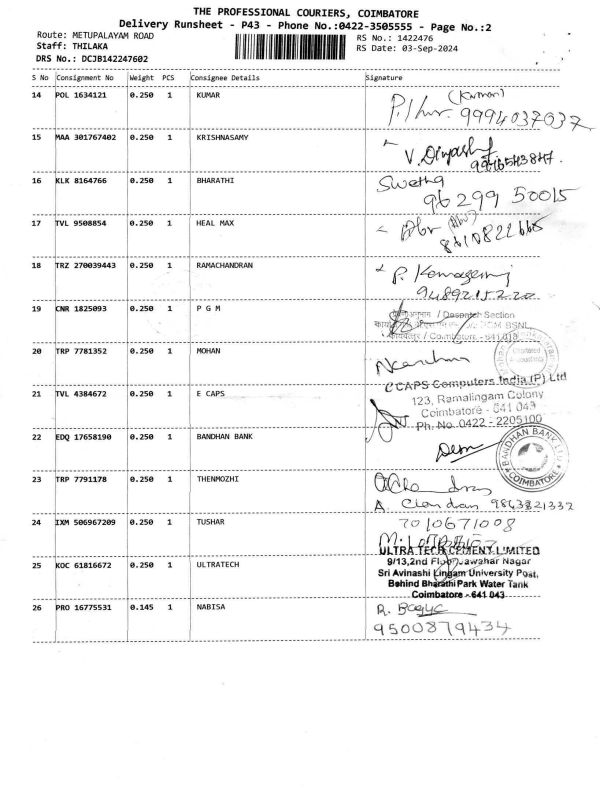 THE PROFESSIONAL COURIERS, COIMBATORE
Delivery Runsheet - P43 - Phone No.:0422-3505555 - Page No.:2
Route: METUPALAYAM ROAD
RS No.: 1422476
Staff: THILAKA
RS Date: 03-Sep-2024
DRS No.: DCJB142247602
S No Consignment No Weight PCS Consignee Details Signature
14 POL 1634121 0.250 1 KUMAR
(Kumar)
9994037037
15 MAA 301767402 0.250 1 KRISHNASAMY
16 KLK 8164766 0.250 1 BHARATHI
Swetha
96299 50015
17 TVL 9508854 0.250 1 HEAL MAX
8610822665
18 TRZ 270039443 0.250 1 RAMACHANDRAN
9489215220
19 CNR 1825093 0.250 1 P G M
/ Despatch Section
BSNL,
/ Coimbatore - 641 018
20 TRP 7781352 0.250 1 MOHAN
Chartered
Accountants
21 TVL 4384672 0.250 1 E CAPS
CAPS Computers India (P) Ltd
123, Ramalingam Colony
Coimbatore - 641 043
Ph. No. 0422 - 2205100
22 EDQ 17658190 0.250 1 BANDHAN BANK
BANDHAN BANK LTD
COIMBATORE
23 TRP 7791178 0.250 1 THENMOZHI
A. Chandran 9843821332
24 IXM 506967209 0.250 1 TUSHAR
7010671008
25 KOC 61816672 0.250 1 ULTRATECH
ULTRATECH CEMENT LIMITED
9/13,2nd Floor, Jawahar Nagar
Sri Avinashi Lingam University Post,
Behind Bharathi Park Water Tank
Coimbatore - 641 043
26 PRO 16775531 0.145 1 NABISA
9500879434